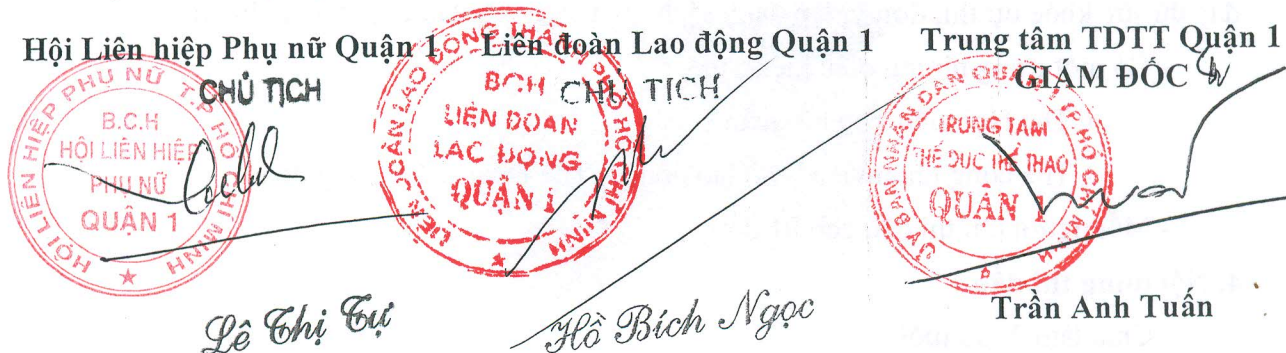 Hội Liên hiệp Phụ nữ Quận 1
CHỦ TỊCH
HỘI LIÊN HIỆP PHỤ NỮ T.P HỒ CHÍ MINH
B.C.H
HỘI LIÊN HIỆP
PHỤ NỮ
QUẬN 1
Lê Thị Tự
Liên đoàn Lao động Quận 1
CHỦ TỊCH
LIÊN ĐOÀN LAO ĐỘNG THÀNH PHỐ HỒ CHÍ MINH
BCH
LIÊN ĐOÀN
LAO ĐỘNG
QUẬN 1
Hồ Bích Ngọc
Trung tâm TDTT Quận 1
GIÁM ĐỐC
ỦY BAN NHÂN DÂN QUẬN 1 TP. HỒ CHÍ MINH
TRUNG TÂM
THỂ DỤC THỂ THAO
QUẬN 1
Trần Anh Tuấn